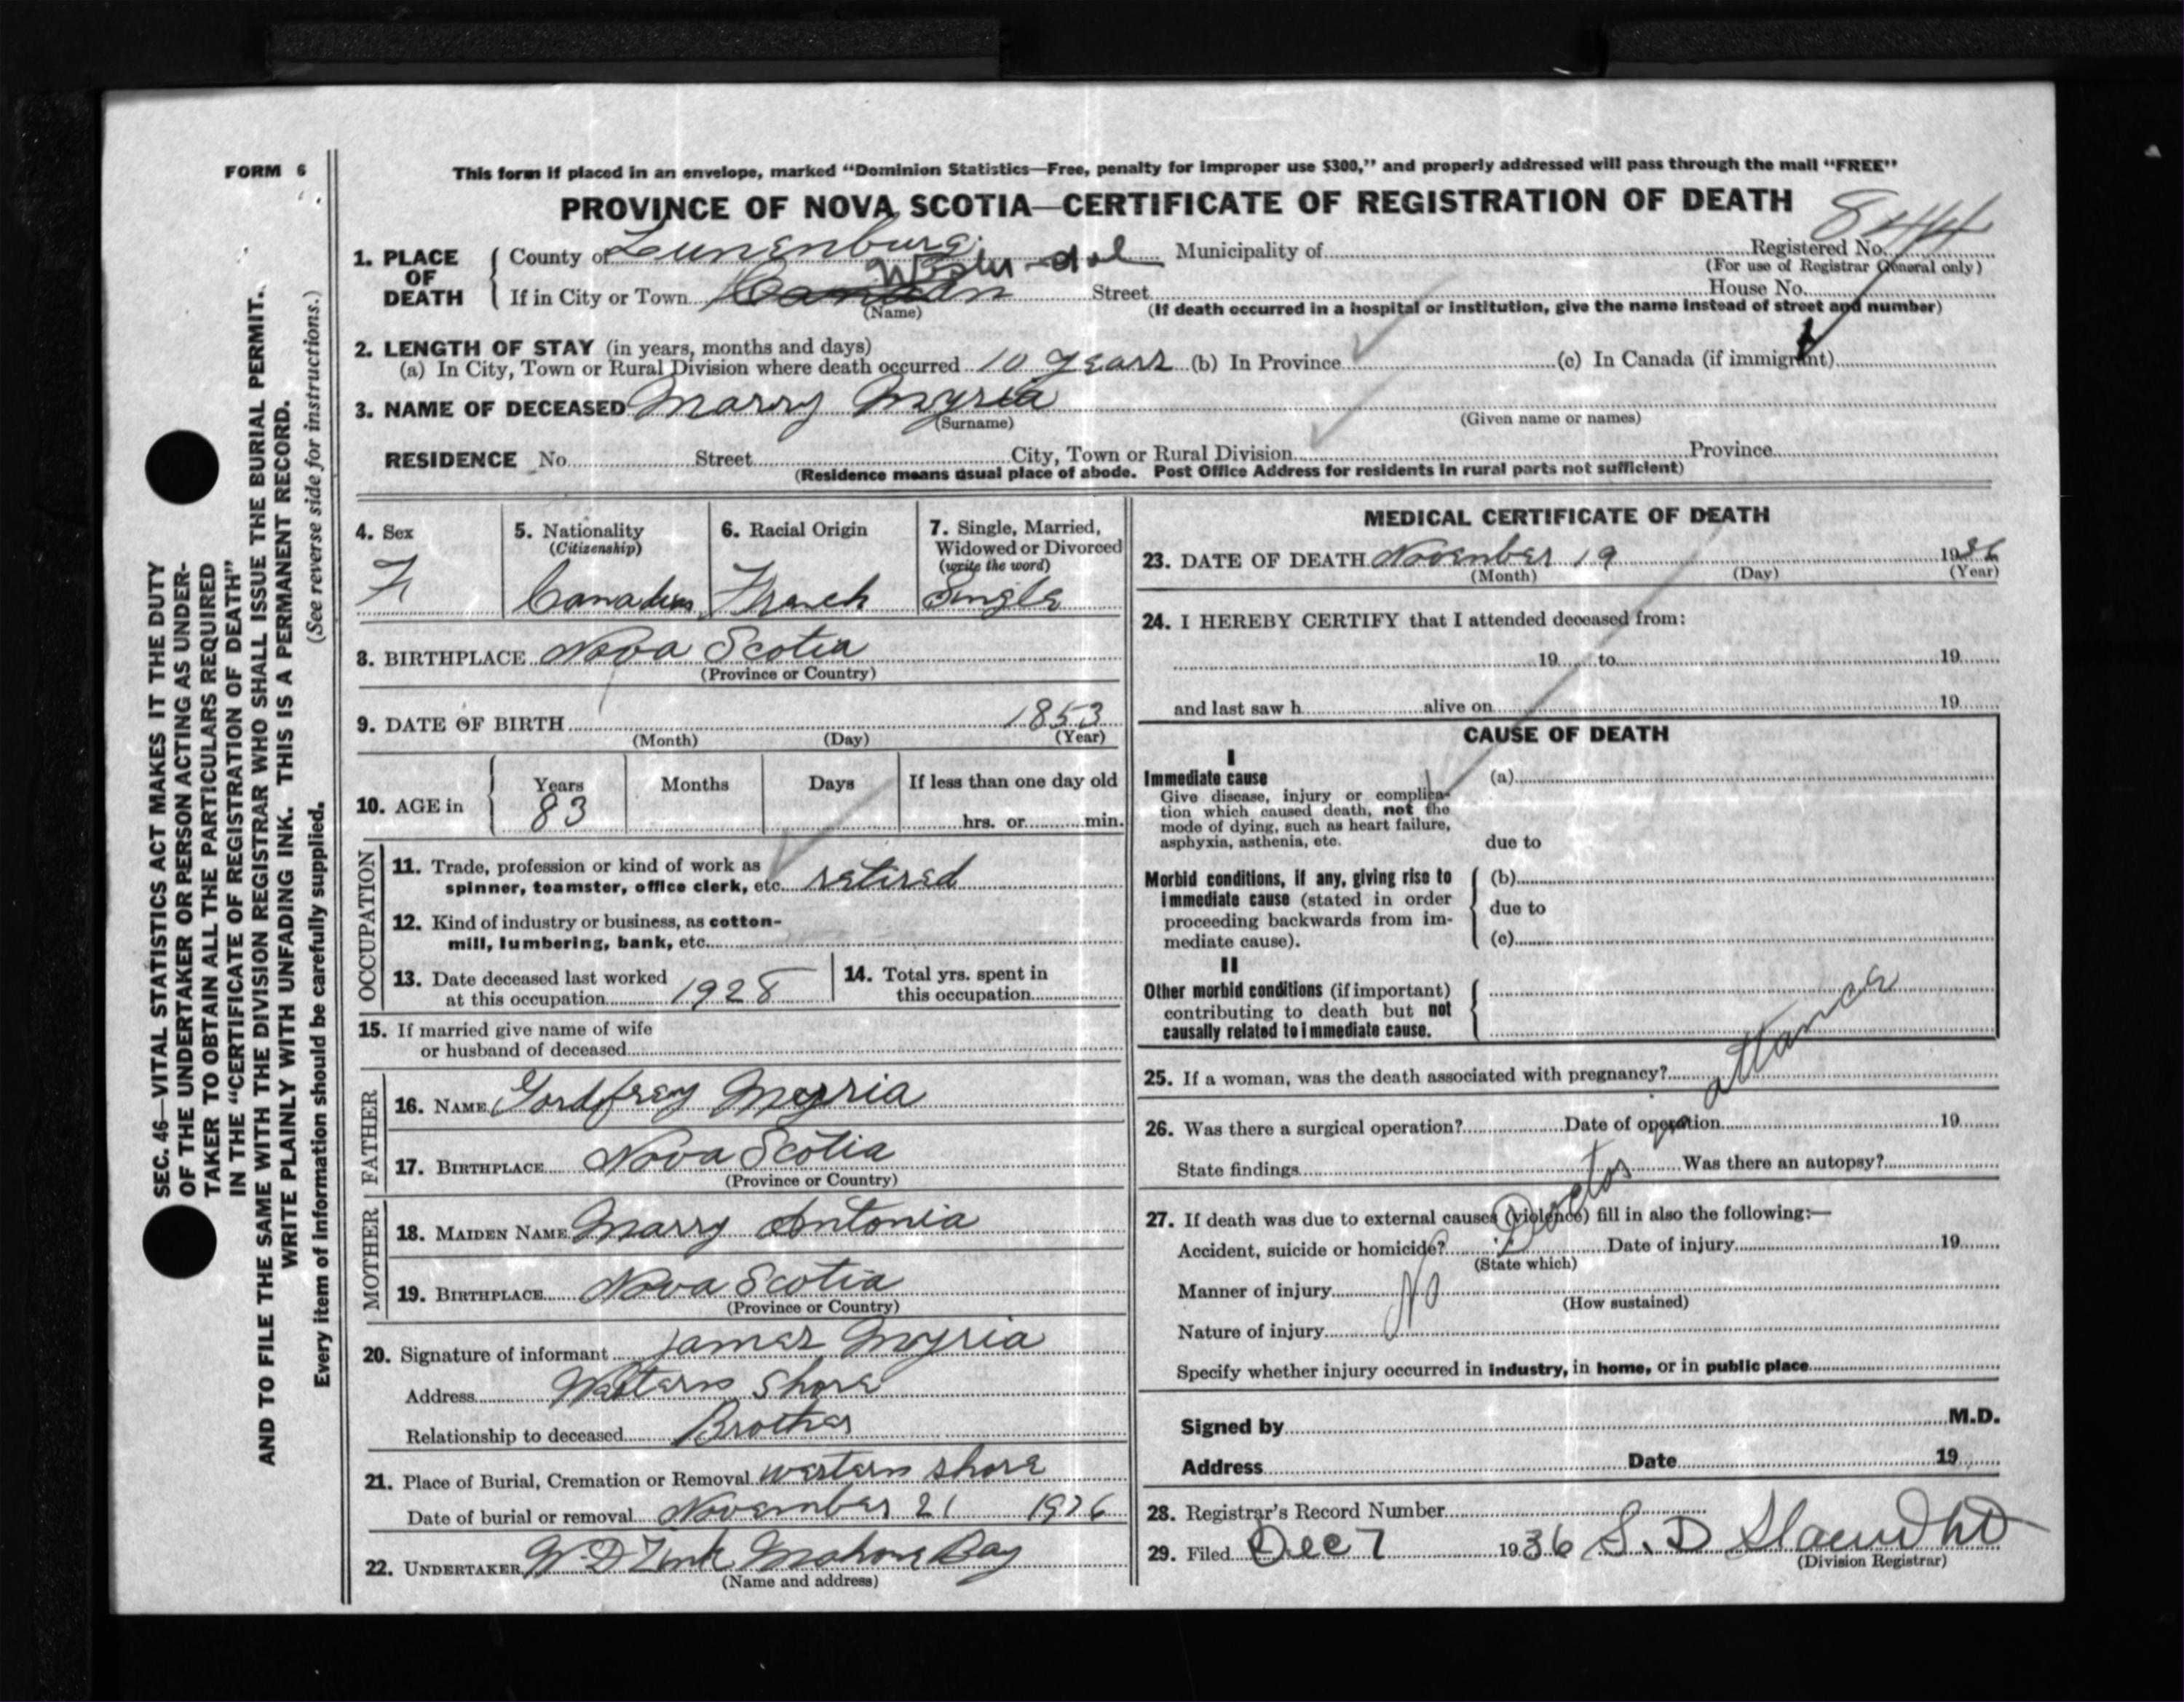 FORM 6
This form if placed in an envelope, marked “Dominion Statistics—Free, penalty for improper use $300,” and properly addressed will pass through the mail “FREE”
PROVINCE OF NOVA SCOTIA—CERTIFICATE OF REGISTRATION OF DEATH
1. PLACE OF DEATH
County of Lunenburg Municipality of Registered No. 8244
(For use of Registrar General only)
If in City or Town Street House No.
(Name) (If death occurred in a hospital or institution, give the name instead of street and number)
2. LENGTH OF STAY (in years, months and days)
(a) In City, Town or Rural Division where death occurred 10 years (b) In Province (c) In Canada (if immigrant)
3. NAME OF DECEASED Marry Myria
(Surname) (Given name or names)
RESIDENCE No. Street City, Town or Rural Division Province
(Residence means usual place of abode. Post Office Address for residents in rural parts not sufficient)
4. Sex
F
5. Nationality
(Citizenship)
Canadian
6. Racial Origin
French
7. Single, Married,
Widowed or Divorced
(write the word)
Single
8. BIRTHPLACE Nova Scotia
(Province or Country)
9. DATE OF BIRTH 1853
(Month) (Day) (Year)
10. AGE in
Years Months Days If less than one day old
83 hrs. or min.
OCCUPATION
11. Trade, profession or kind of work as
spinner, teamster, office clerk, etc. retired
12. Kind of industry or business, as cotton-
mill, lumbering, bank, etc.
13. Date deceased last worked
at this occupation 1928
14. Total yrs. spent in
this occupation
15. If married give name of wife
or husband of deceased
FATHER
16. NAME Gordfrey Myria
17. BIRTHPLACE Nova Scotia
(Province or Country)
MOTHER
18. MAIDEN NAME Marry Antonia
19. BIRTHPLACE Nova Scotia
(Province or Country)
20. Signature of informant James Myria
Address Western Shore
Relationship to deceased Brother
21. Place of Burial, Cremation or Removal western shore
Date of burial or removal November 21 1936
22. UNDERTAKER W. D Zink Mahone Bay
(Name and address)
MEDICAL CERTIFICATE OF DEATH
23. DATE OF DEATH November 19 1936
(Month) (Day) (Year)
24. I HEREBY CERTIFY that I attended deceased from:
19 to 19
and last saw h alive on 19
CAUSE OF DEATH
I
Immediate cause
Give disease, injury or complica-
tion which caused death, not the
mode of dying, such as heart failure,
asphyxia, asthenia, etc.
(a)
due to
Morbid conditions, if any, giving rise to
immediate cause (stated in order
proceeding backwards from im-
mediate cause).
(b)
due to
(c)
II
Other morbid conditions (if important)
contributing to death but not
causally related to immediate cause.
No Doctor
25. If a woman, was the death associated with pregnancy?
26. Was there a surgical operation? Date of operation 19
State findings Was there an autopsy?
27. If death was due to external causes (violence) fill in also the following:—
Accident, suicide or homicide? Date of injury 19
(State which)
Manner of injury
(How sustained)
Nature of injury
Specify whether injury occurred in industry, in home, or in public place
Signed by M.D.
Address Date 19
28. Registrar's Record Number
29. Filed Dec 7 1936 S. D
(Division Registrar)
SEC. 46—VITAL STATISTICS ACT MAKES IT THE DUTY
OF THE UNDERTAKER OR PERSON ACTING AS UNDER-
TAKER TO OBTAIN ALL THE PARTICULARS REQUIRED
IN THE “CERTIFICATE OF REGISTRATION OF DEATH”
AND TO FILE THE SAME WITH THE DIVISION REGISTRAR WHO SHALL ISSUE THE BURIAL PERMIT.
WRITE PLAINLY WITH UNFADING INK. THIS IS A PERMANENT RECORD.
(See reverse side for instructions.)
Every item of information should be carefully supplied.